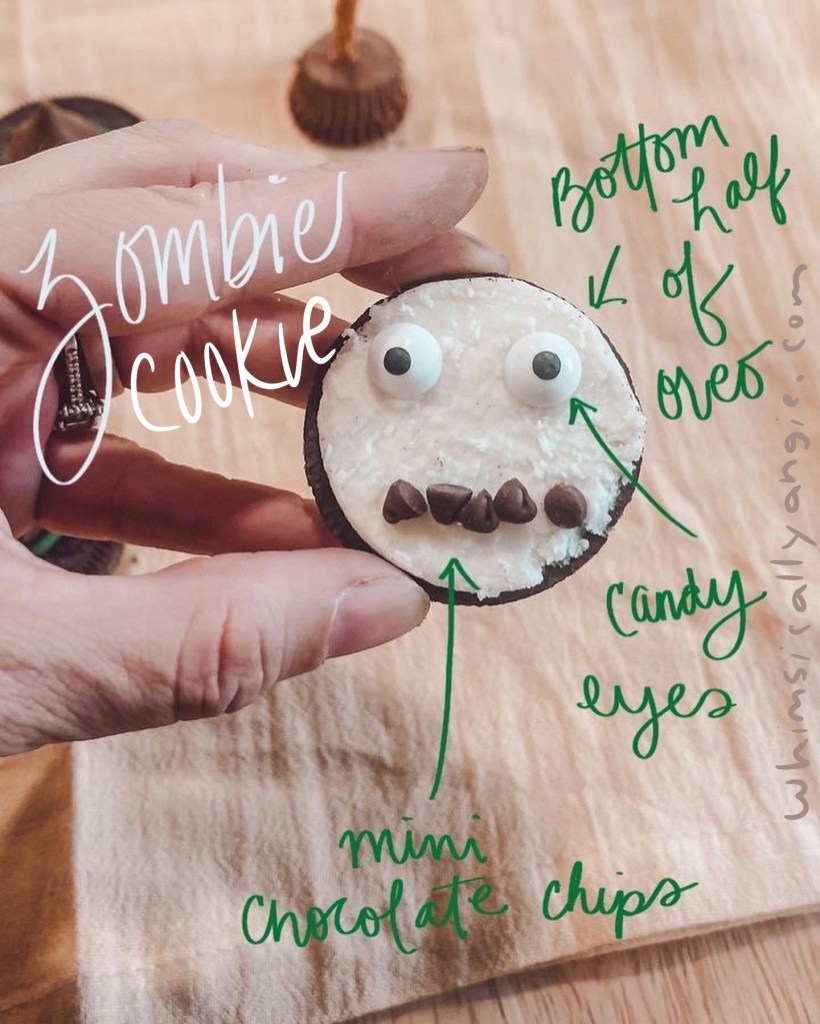 Zombie
Cookie
Bottom
half
of
oreo
candy
eyes
mini
chocolate chips
whimsicallyangie.com